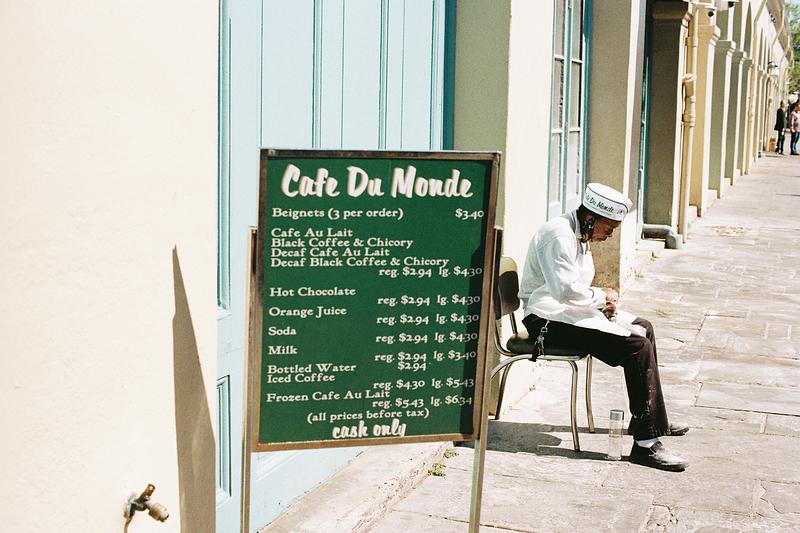 Cafe Du Monde
Beignets (3 per order) $3.40
Cafe Au Lait
Black Coffee & Chicory
Decaf Cafe Au Lait
Decaf Black Coffee & Chicory
reg. $2.94 lg. $4.30
Hot Chocolate
reg. $2.94 lg. $4.30
Orange Juice
reg. $2.94 lg. $4.30
Soda
reg. $2.94 lg. $4.30
Milk
reg. $2.94 lg. $3.40
Bottled Water $2.94
Iced Coffee
reg. $4.30 lg. $5.43
Frozen Cafe Au Lait
reg. $5.43 lg. $6.34
(all prices before tax)
cash only
Du Monde